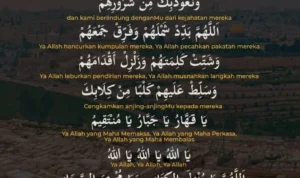 وَنَعُوذُبِكَ مِنْ شُرُورِهِمْ
dan kami berlindung denganMu dari kejahatan mereka
اَللَّهُمَّ بَدِّدْ شَمْلَهُمْ وَفَرِّقْ جَمْعَهُمْ
Ya Allah hancurkan kumpulan mereka, Ya Allah pecahkan pakatan mereka
وَشَتِّتْ كَلِمَتَهُمْ وَزَلْزِلْ أَقْدَامَهُمْ
Ya Allah leburkan pendirian mereka, Ya Allah musnahkan langkah mereka
وَسَلِّطْ عَلَيْهِمْ كَلْبًا مِنْ كِلَابِكَ
Cengkamkan anjing-anjingMu kepada mereka
يَا قَهَّارُ يَا جَبَّارُ يَا مُنْتَقِمُ
Ya Allah yang Maha Memaksa, Ya Allah yang Maha Perkasa,
Ya Allah yang Maha Membalas
يَا اَللهُ يَا اَللهُ يَا اَللهُ
Ya Allah, Ya Allah, Ya Allah